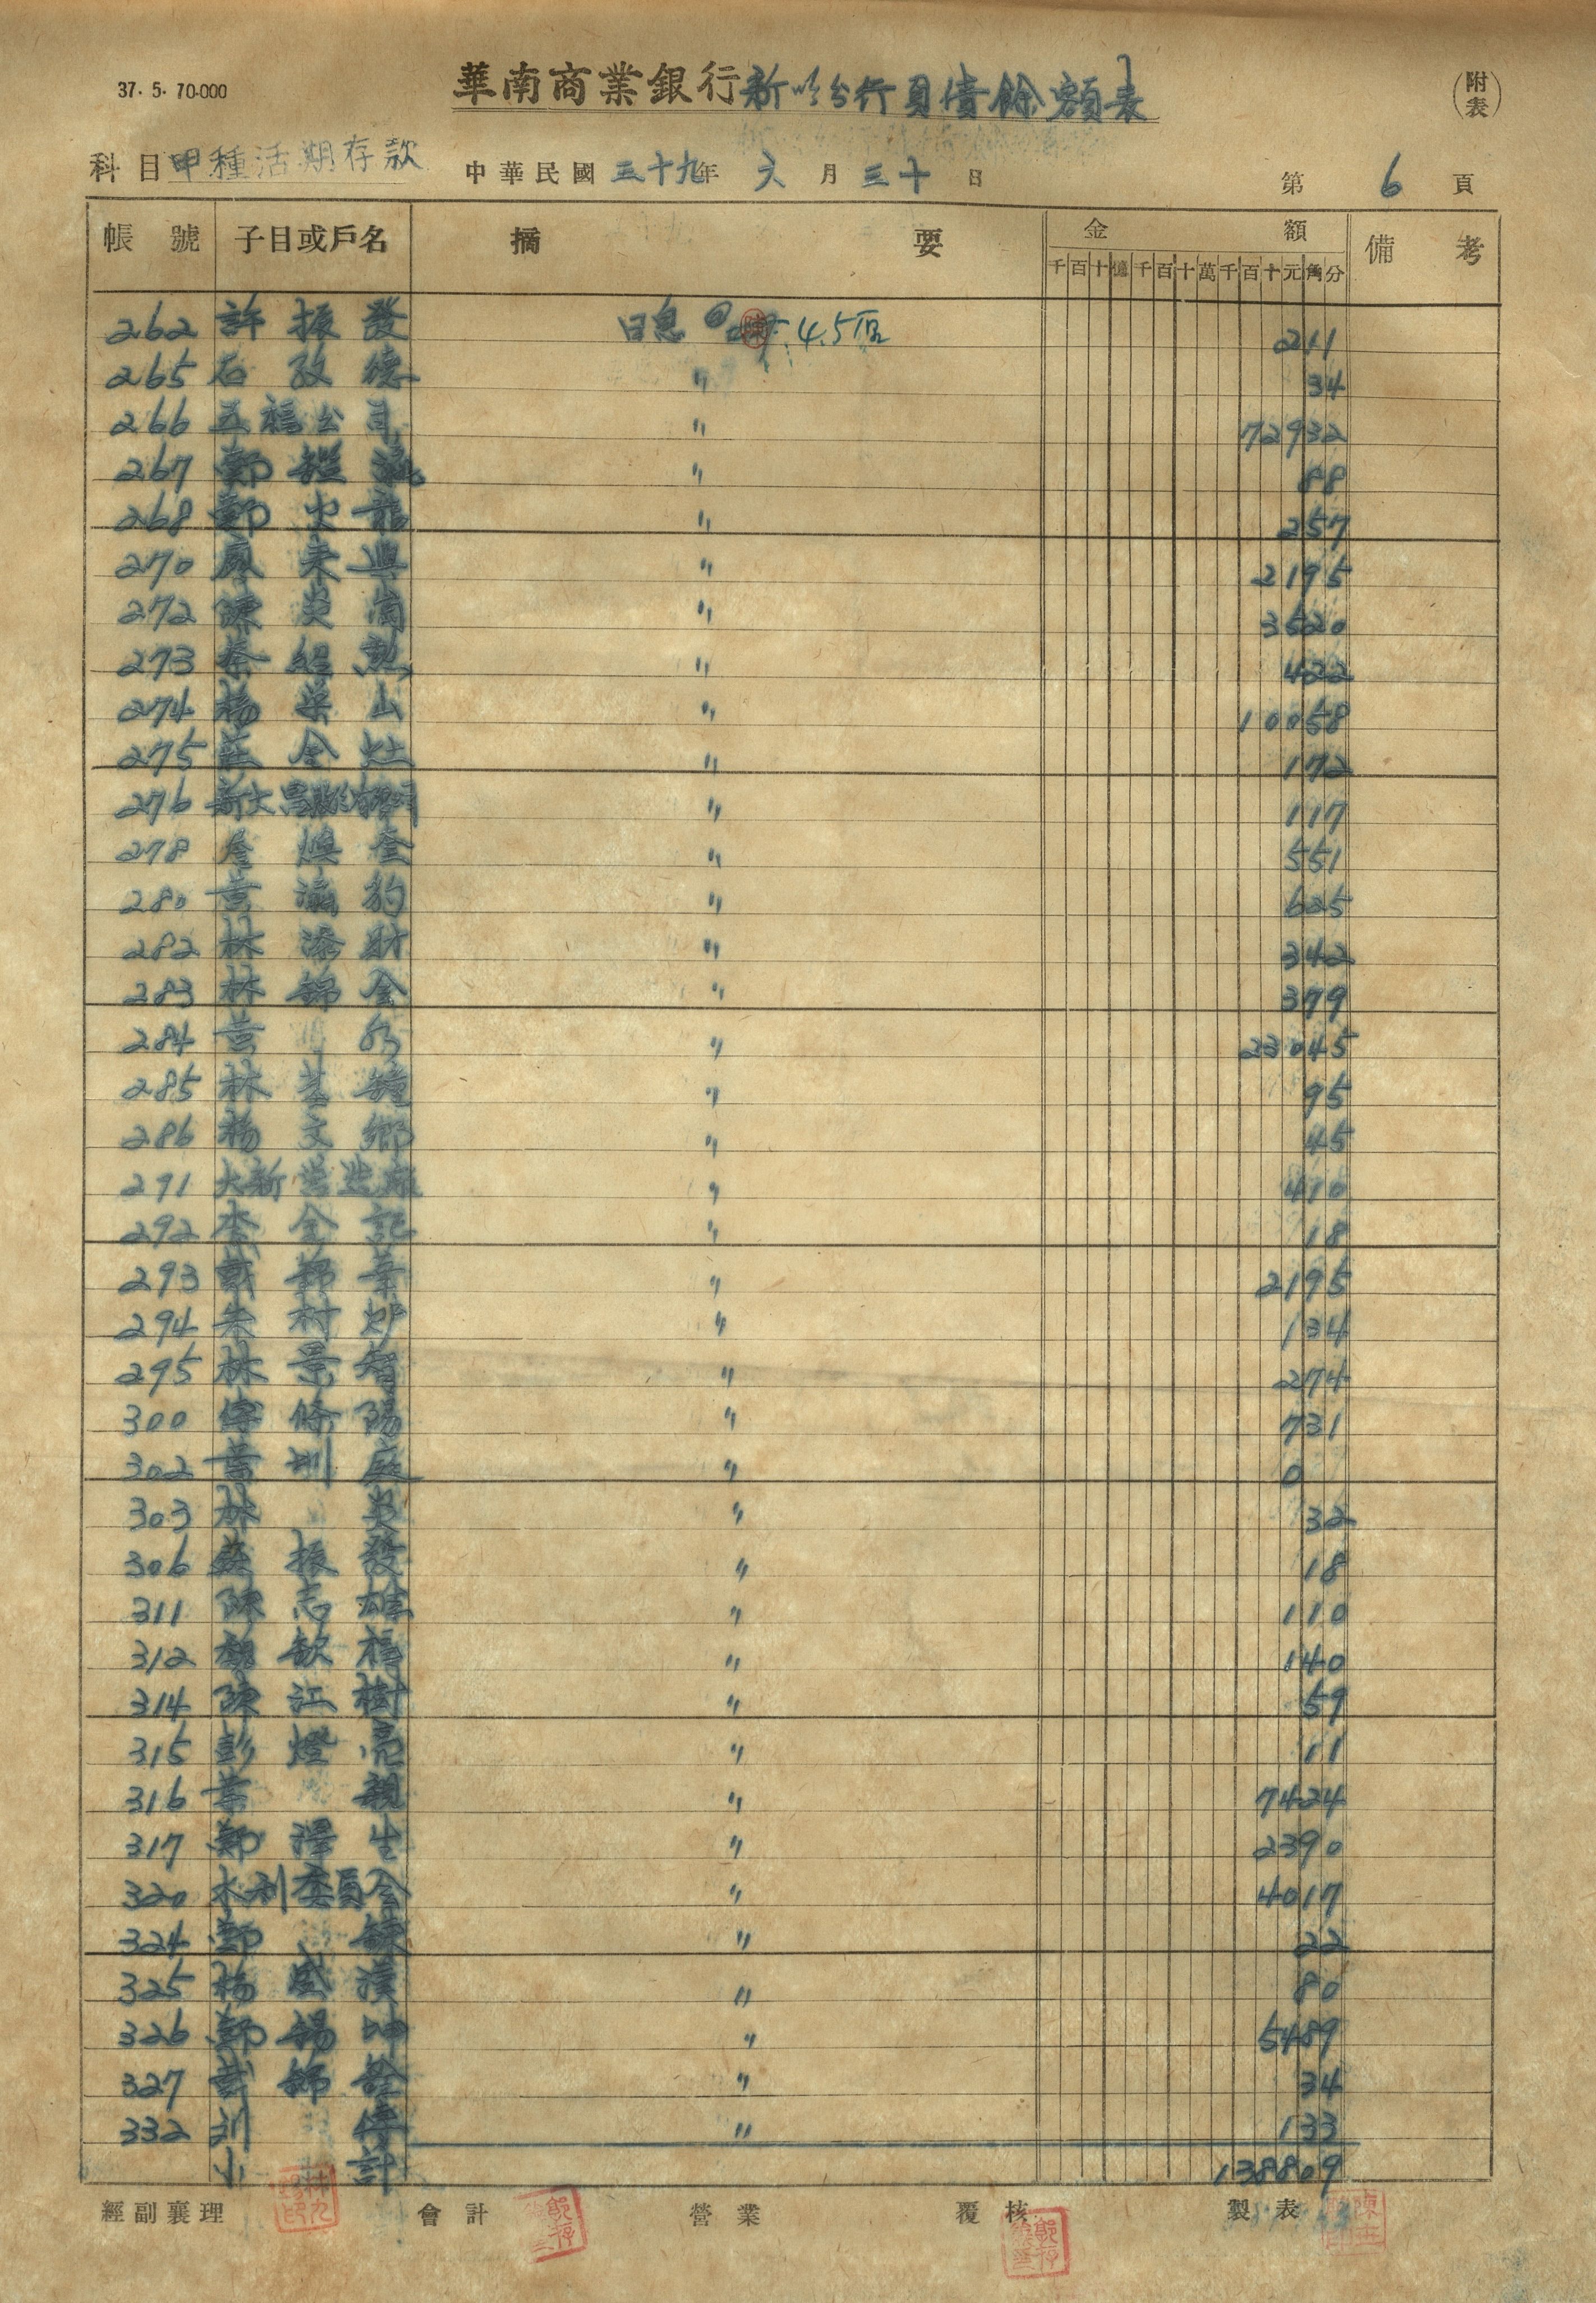 37. 5. 70.000
華南商業銀行新竹分行負債餘額表
(附表)
科目 甲種活期存款 中華民國 三十九年 六月 三十日 第 6 頁
帳號 子目或戶名 摘要 金額 備考
千百十億千百十萬千百十元角分
262 許振發 日息 4.5 211
265 石 德 〃 34
266 五福公司 〃 72932
267 鄭 〃 88
268 鄭火龍 〃 257
270 來興 〃 2195
272 陳炎 〃 3520
273 蔡 〃 422
274 楊 山 〃 10058
275 莊全灶 〃 172
276 新大昌 〃 117
278 詹煥奎 〃 551
280 黃瀛豹 〃 625
282 林添財 〃 342
283 林錦全 〃 379
284 黃 〃 23045
285 林 〃 95
286 楊文鄉 〃 45
291 大新營造廠 〃 410
292 李金記 〃 18
293 戴 〃 2195
294 朱村 〃 134
295 林景智 〃 274
300 陽 〃 731
302 葉圳庭 〃 0
303 林炎 〃 32
306 蘇振發 〃 18
311 陳志雄 〃 110
312 欽福 〃 140
314 陳江樹 〃 59
315 彭燈亮 〃 11
316 葉親 〃 7424
317 鄭澤生 〃 2390
320 水利委員会 〃 4017
324 鄭鍊 〃 22
325 楊盛漢 〃 80
326 鄭錫坤 〃 5489
327 〃 34
332 〃 133
小計 138809
經副襄理 會計 營業 覆核 製表